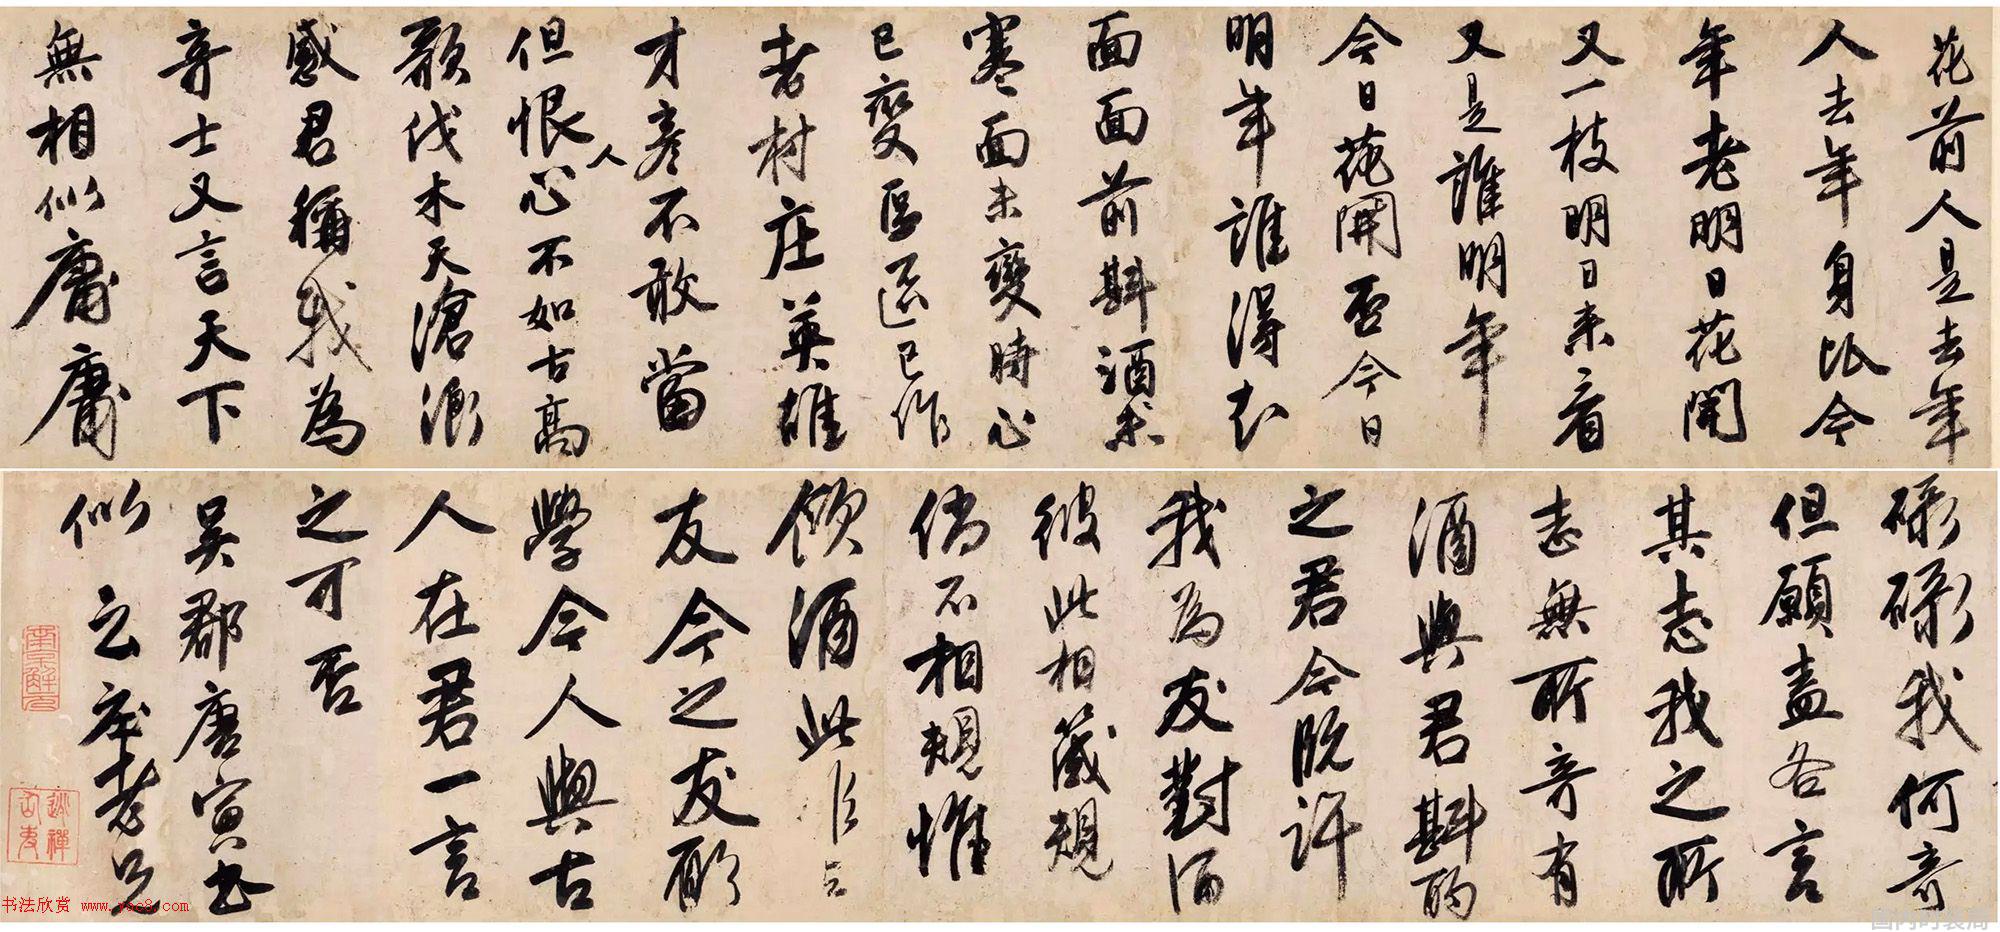 花前人是去年
人去年身比今
年老明日花開
又一枝明日来看
又是誰明年
今日花開否今日
明年誰得知
面面前斟酒未
寒面未變時心
已變區區已作
老村庄英雄
才彥不敢當
但恨人心不如古高
歌伐木天滄浪
感君稱我為
奇士又言天下
無相似庸庸
碌碌我何奇
但願盡各言
其志我之所
志無所奇有
酒與君斟酌
之君今既許
我為友對酒
彼此相箴規
倘不相規惟
飲酒此
友今之友
學今人與古
人在君一言
之可否
吳郡唐寅书
似立庵老兄
南京解元
逃禪仙吏
书法欣赏 www.yac8.com